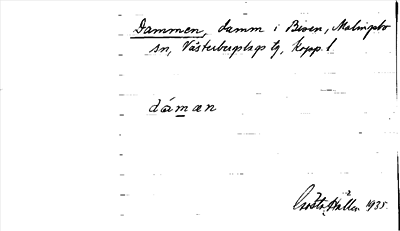 Dammen, damm i Bisen, Malingsbo
sn, Västerbergslags tg, Kopp. l.
dámæn
Gösta Hallén 1935.